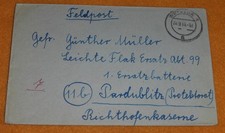 Feldpost
Gefr. Günther Müller
Leichte Flak Ersatz Abt. 99
1. Ersatzbatterie
11b) Pardubitz (Protektorat)
Richthofenkaserne